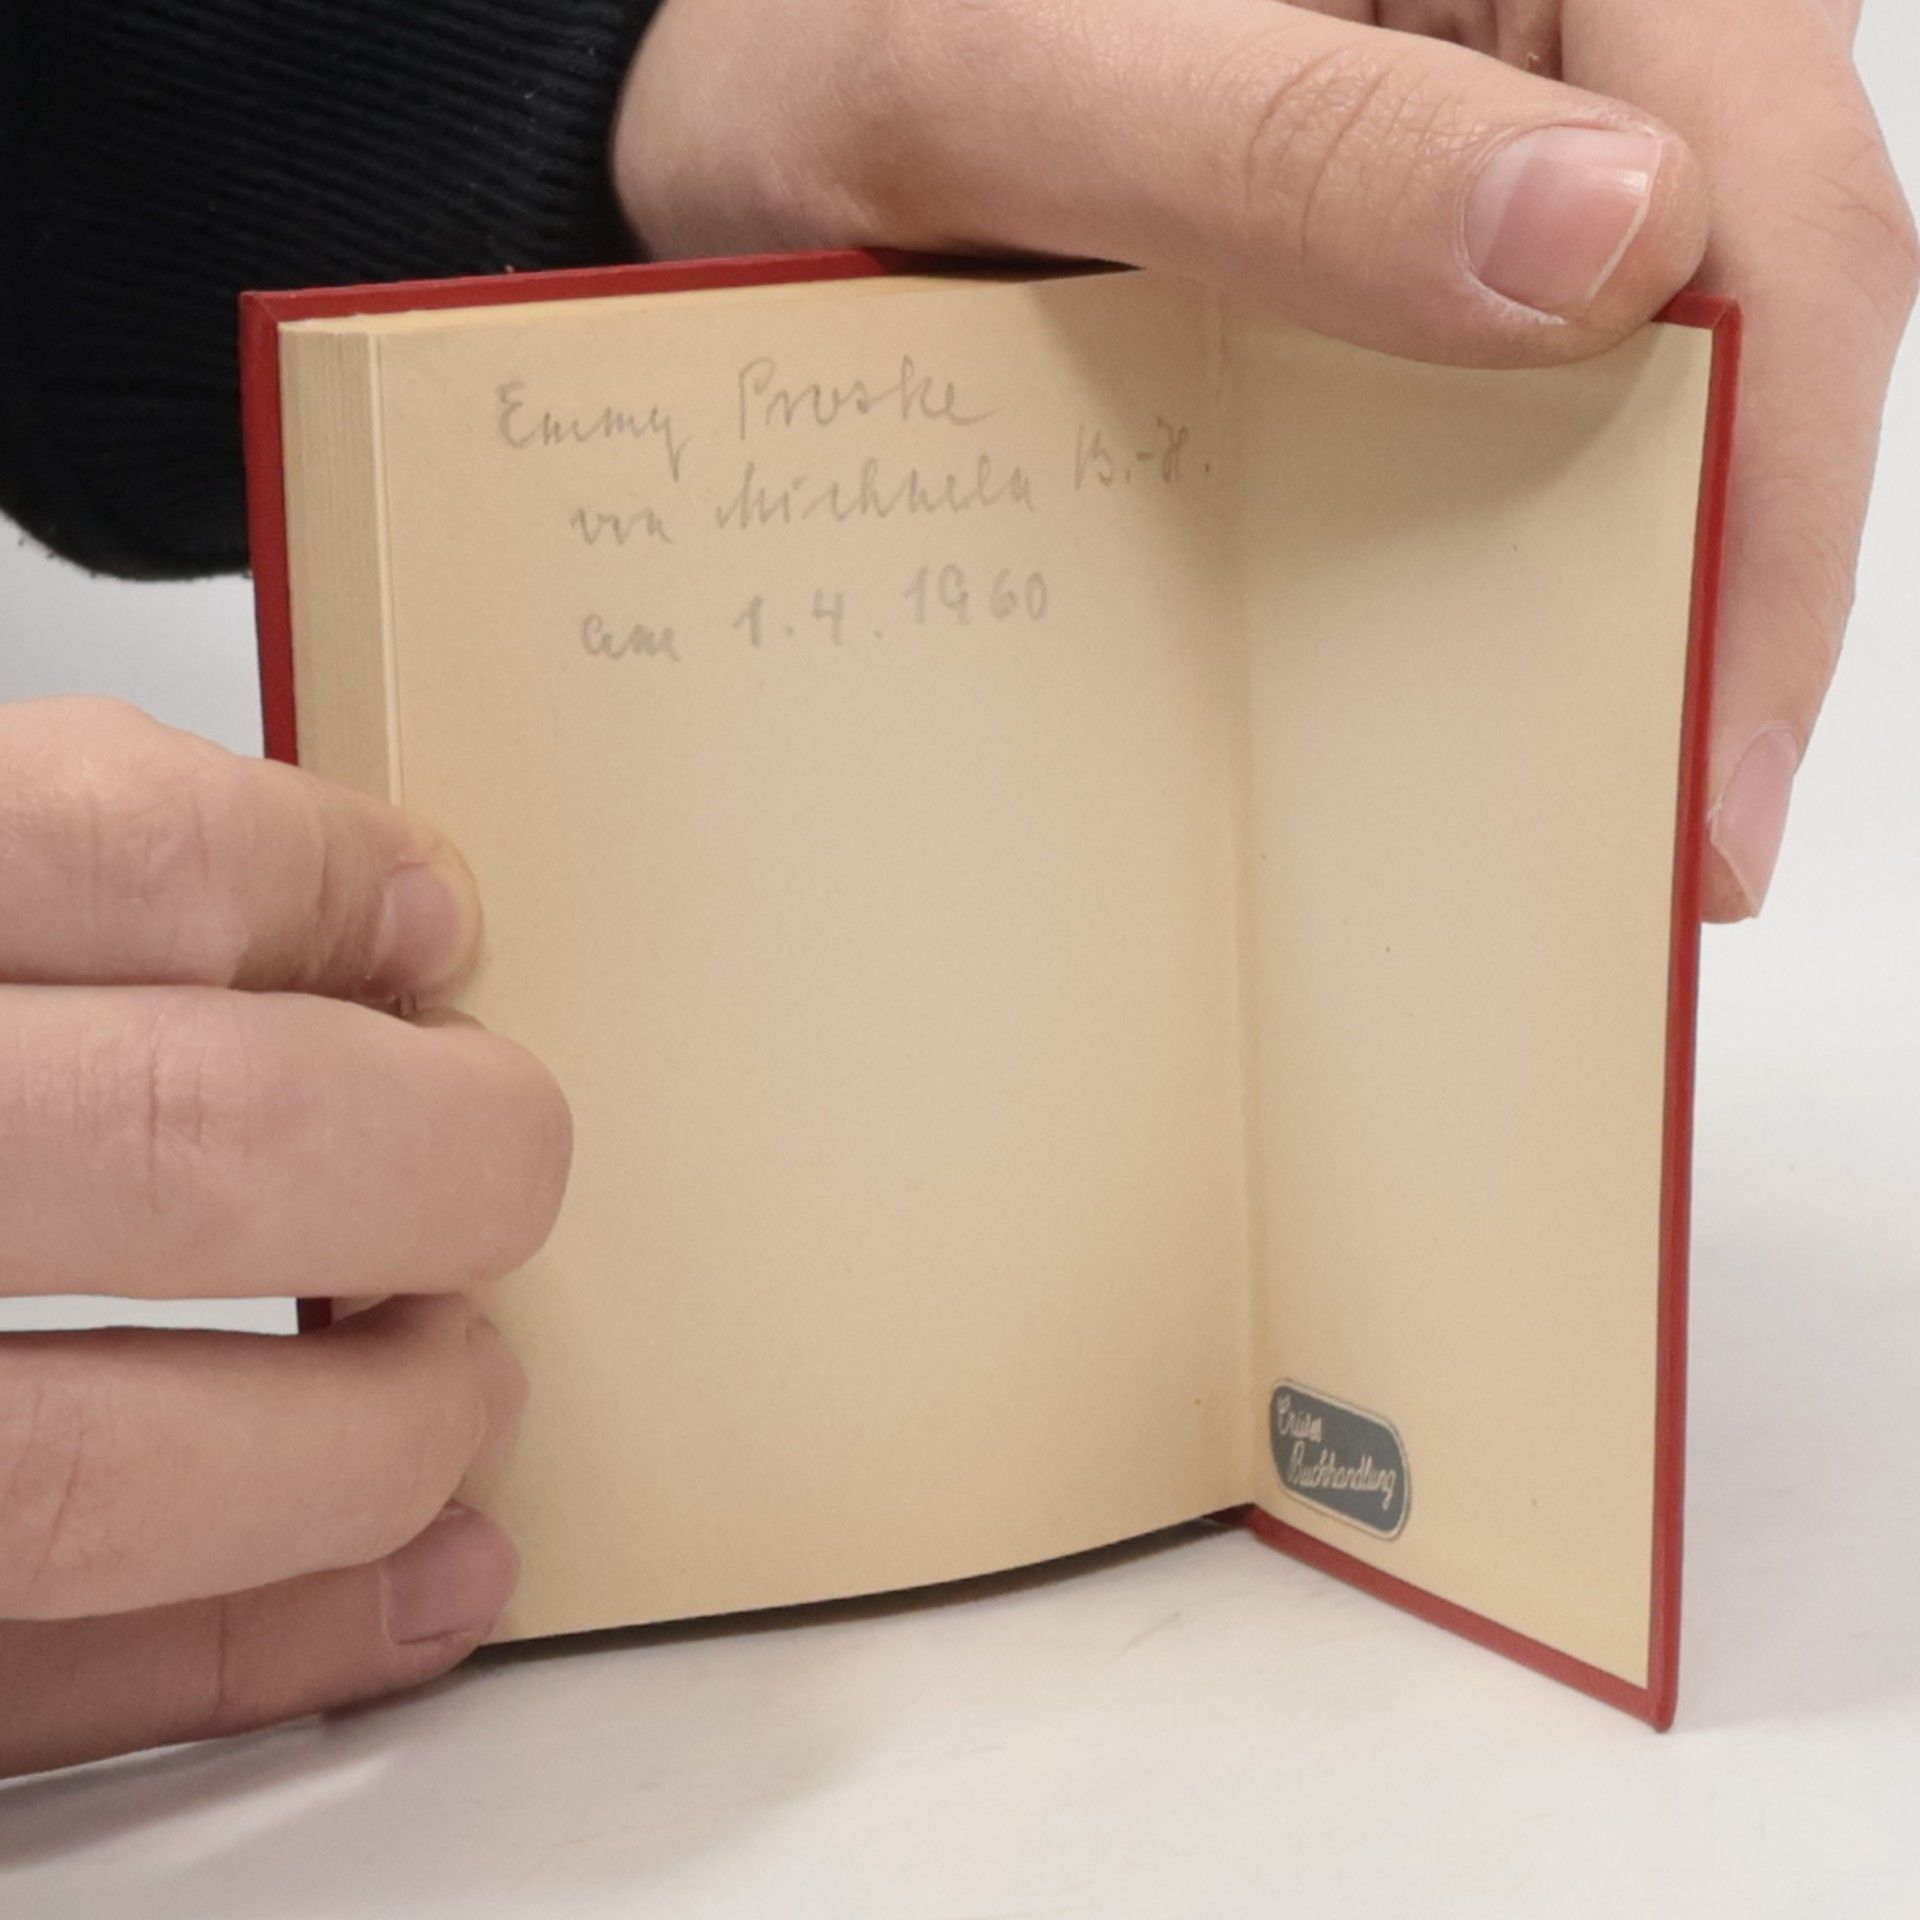 Emmy Proske
von Michaela B.-H.
am 1.4.1960
Buchhandlung